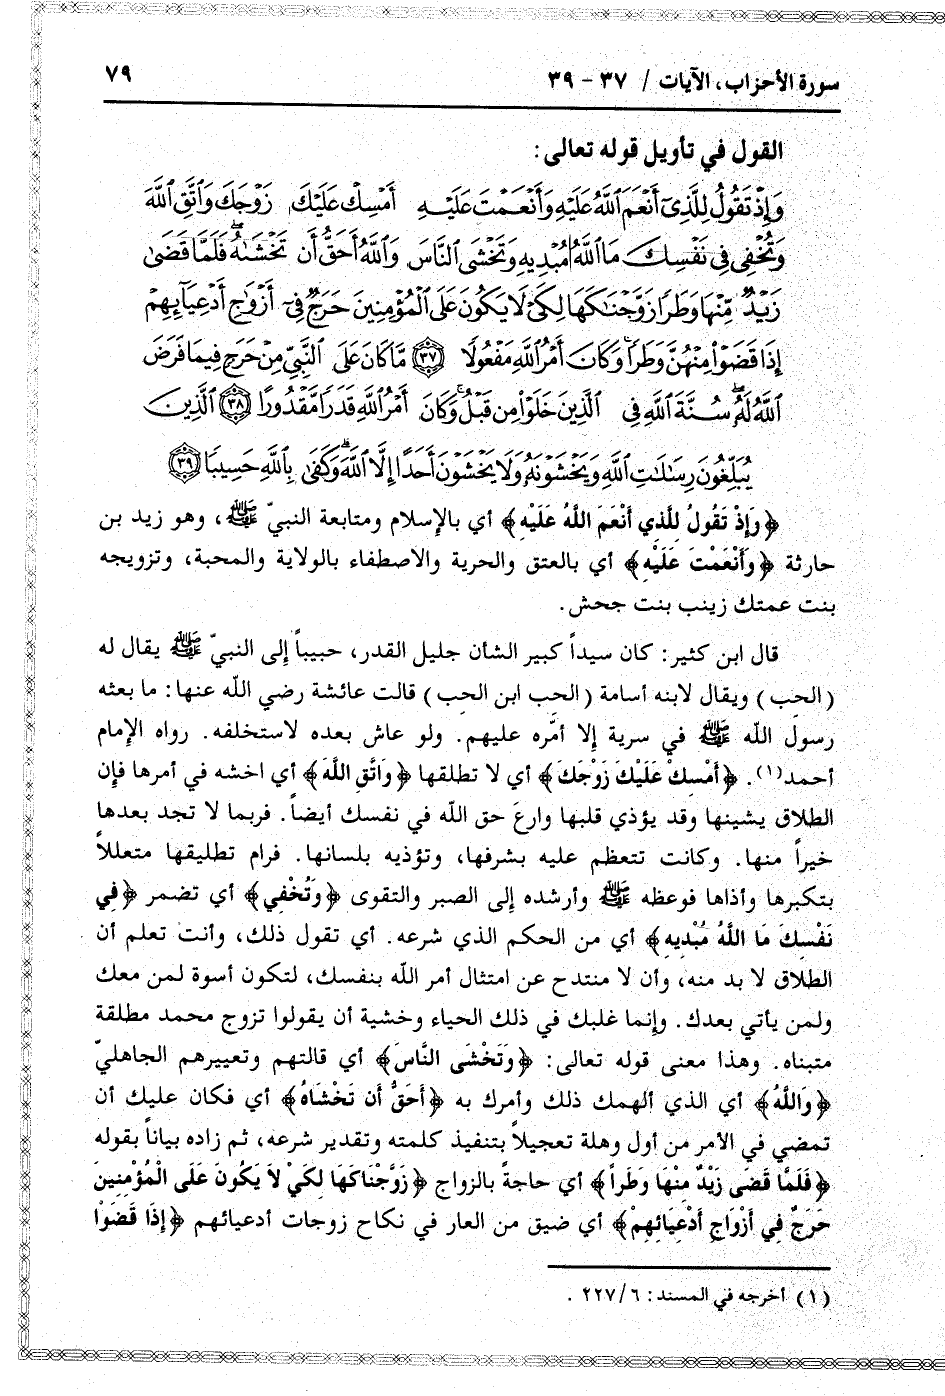 سورة الأحزاب، الآيات / ٣٧ - ٣٩ ٧٩
القول في تأويل قوله تعالى:
وَإِذْ تَقُولُ لِلَّذِىٓ أَنْعَمَ ٱللَّهُ عَلَيْهِ وَأَنْعَمْتَ عَلَيْهِ أَمْسِكْ عَلَيْكَ زَوْجَكَ وَٱتَّقِ ٱللَّهَ
وَتُخْفِى فِى نَفْسِكَ مَا ٱللَّهُ مُبْدِيهِ وَتَخْشَى ٱلنَّاسَ وَٱللَّهُ أَحَقُّ أَن تَخْشَىٰهُ ۖ فَلَمَّا قَضَىٰ
زَيْدٌ مِّنْهَا وَطَرًا زَوَّجْنَٰكَهَا لِكَىْ لَا يَكُونَ عَلَى ٱلْمُؤْمِنِينَ حَرَجٌ فِىٓ أَزْوَٰجِ أَدْعِيَآئِهِمْ
إِذَا قَضَوْا۟ مِنْهُنَّ وَطَرًا ۚ وَكَانَ أَمْرُ ٱللَّهِ مَفْعُولًا ﴿٣٧﴾ مَّا كَانَ عَلَى ٱلنَّبِىِّ مِنْ حَرَجٍ فِيمَا فَرَضَ
ٱللَّهُ لَهُۥ ۖ سُنَّةَ ٱللَّهِ فِى ٱلَّذِينَ خَلَوْا۟ مِن قَبْلُ ۚ وَكَانَ أَمْرُ ٱللَّهِ قَدَرًا مَّقْدُورًا ﴿٣٨﴾ ٱلَّذِينَ
يُبَلِّغُونَ رِسَٰلَٰتِ ٱللَّهِ وَيَخْشَوْنَهُۥ وَلَا يَخْشَوْنَ أَحَدًا إِلَّا ٱللَّهَ ۗ وَكَفَىٰ بِٱللَّهِ حَسِيبًا ﴿٣٩﴾
﴿وَإِذْ تَقُولُ لِلَّذِي أَنْعَمَ اللَّهُ عَلَيْهِ﴾ أي بالإسلام ومتابعة النبيّ ﷺ، وهو زيد بن
حارثة ﴿وَأَنْعَمْتَ عَلَيْهِ﴾ أي بالعتق والحرية والاصطفاء بالولاية والمحبة، وتزويجه
بنت عمتك زينب بنت جحش.
قال ابن كثير: كان سيداً كبير الشأن جليل القدر، حبيباً إلى النبيّ ﷺ يقال له
(الحب) ويقال لابنه أسامة (الحب ابن الحب) قالت عائشة رضي الله عنها: ما بعثه
رسول الله ﷺ في سرية إلا أمّره عليهم. ولو عاش بعده لاستخلفه. رواه الإمام
أحمد(١). ﴿أَمْسِكْ عَلَيْكَ زَوْجَكَ﴾ أي لا تطلقها ﴿وَاتَّقِ اللَّهَ﴾ أي اخشه في أمرها فإن
الطلاق يشينها وقد يؤذي قلبها وارعَ حق الله في نفسك أيضاً. فربما لا تجد بعدها
خيراً منها. وكانت تتعظم عليه بشرفها، وتؤذيه بلسانها. فرام تطليقها متعللاً
بتكبرها وأذاها فوعظه ﷺ وأرشده إلى الصبر والتقوى ﴿وَتُخْفِي﴾ أي تضمر ﴿فِي
نَفْسِكَ مَا اللَّهُ مُبْدِيهِ﴾ أي من الحكم الذي شرعه. أي تقول ذلك، وأنت تعلم أن
الطلاق لا بد منه، وأن لا منتدح عن امتثال أمر الله بنفسك، لتكون أسوة لمن معك
ولمن يأتي بعدك. وإنما غلبك في ذلك الحياء وخشية أن يقولوا تزوج محمد مطلقة
متبناه. وهذا معنى قوله تعالى: ﴿وَتَخْشَى النَّاسَ﴾ أي قالتهم وتعييرهم الجاهليّ
﴿وَاللَّهُ﴾ أي الذي ألهمك ذلك وأمرك به ﴿أَحَقُّ أَن تَخْشَاهُ﴾ أي فكان عليك أن
تمضي في الأمر من أول وهلة تعجيلاً بتنفيذ كلمته وتقدير شرعه، ثم زاده بياناً بقوله
﴿فَلَمَّا قَضَى زَيْدٌ مِنْهَا وَطَراً﴾ أي حاجةً بالزواج ﴿زَوَّجْنَاكَهَا لِكَيْ لاَ يَكُونَ عَلَى الْمُؤْمِنِينَ
حَرَجٌ فِي أَزْوَاجِ أَدْعِيَائِهِمْ﴾ أي ضيق من العار في نكاح زوجات أدعيائهم ﴿إِذَا قَضَوْا
(١) أخرجه في المسند: ٦/ ٢٢٧.